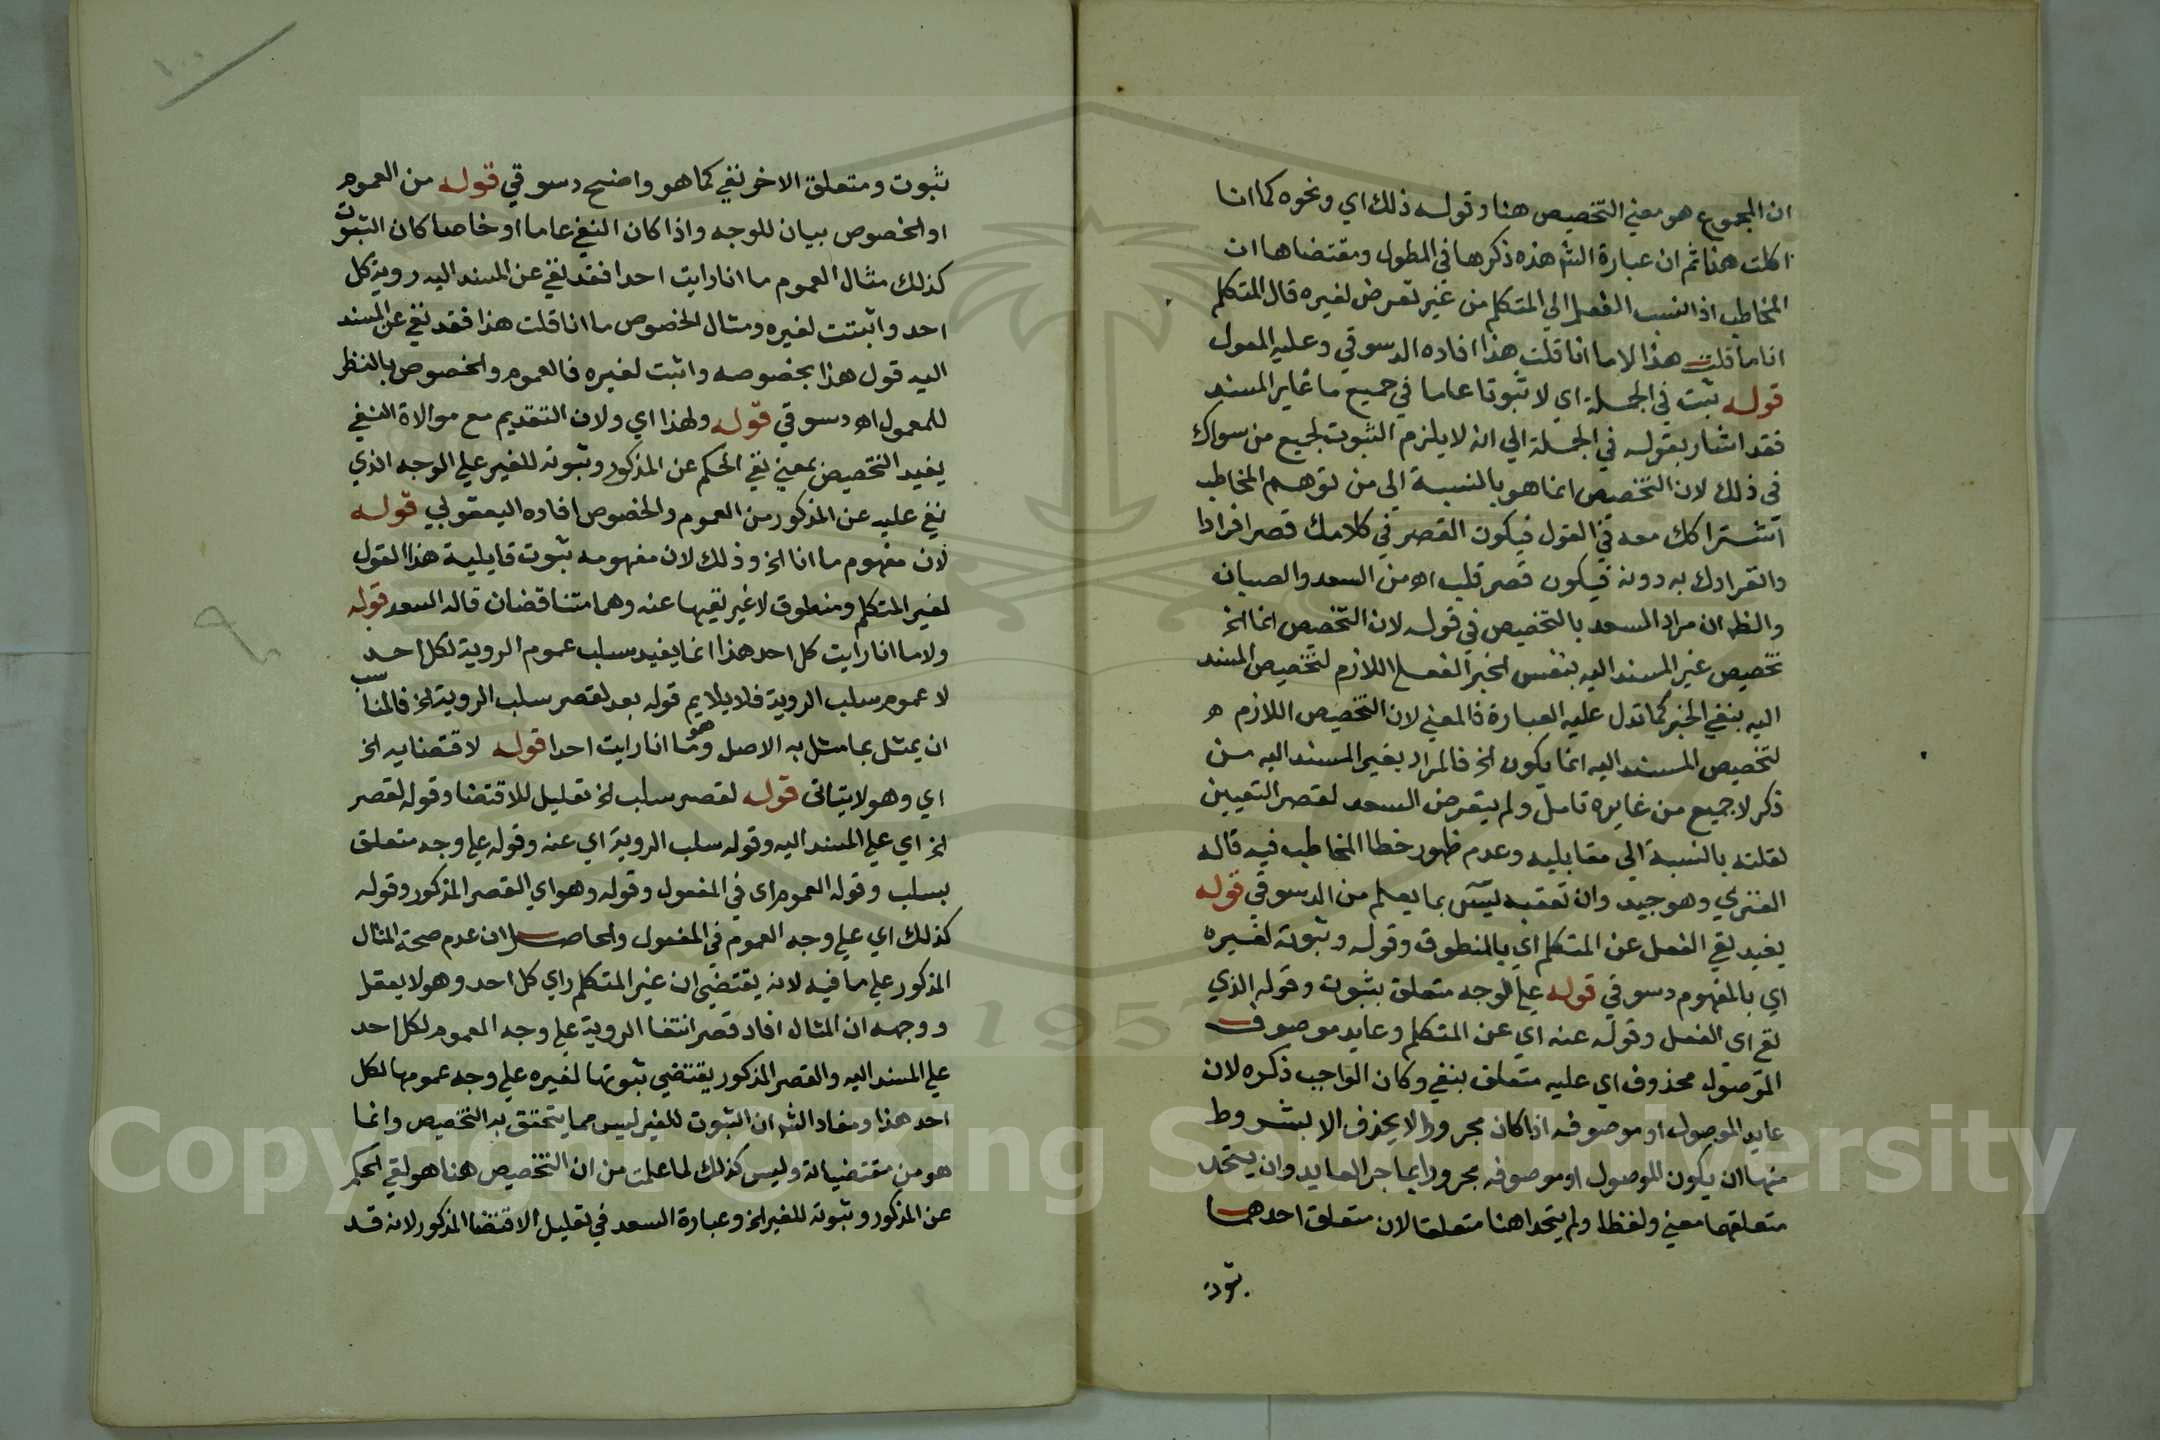 ان المجموع هو معني التخصيص هنا وقوله ذلك اي ونحوه كما انا
اكلت هذا ثم ان عبارة الش هذه ذكرها في المطول ومقتضاها ان
المخاطب اذا نسب الفعل الي المتكلم من غير تعرض لغيره قال المتكلم
انا ما قلت هذا لا ما انا قلت هذا افاده الدسوقي وعليه المعول
قوله ثبت في الجملة اي لا ثبوتا عاما في جميع ما غاير المسند
فقد اشار بقوله في الجملة الي انه لا يلزم الثبوت لجميع من سواك
في ذلك لان التخصيص انما هو بالنسبة الى من توهم المخاطب
اشتراكك معه في القول فيكون القصر في كلامك قصر افرادا
وانفرادك به دونه فيكون قصر قلب اه من السعد والصبان
والظ ان مراد السعد بالتخصيص في قوله لان التخصيص انما الخ
تخصيص غير المسند اليه بنفس الخبر الفعلي اللازم لتخصيص المسند
اليه بنفي الخبر كما تدل عليه العبارة فالمعني لان التخصيص اللازم ه
لتخصيص المسند اليه انما يكون الخ فالمراد بغير المسند اليه من
ذكر لا جميع من غايره تامل ولم يتعرض السعد لقصر التعيين
لقلته بالنسبة الي مقابليه وعدم ظهور خطا المخاطب فيه قاله
الفنري وهو جيد وان تعقبه يس بما يعلم من الدسوقي قوله
يفيد نفي الفعل عن المتكلم اي بالمنطوق وقوله وثبوته لغيره
اي بالمفهوم دسوقي قوله علي الوجه متعلق بثبوت وقوله الذي
نفي اي الفعل وقوله عنه اي عن المتكلم وعايد موصوف
الموصول محذوف اي عليه متعلق بنفي وكان الواجب ذكره لان
عايد الموصول او موصوفه اذا كان مجرورا لا يحذف الا بشروط
منها ان يكون الموصول او موصوفه مجرورا بما جر العايد وان يتحد
متعلقهما معني ولفظا ولم يتحدا هنا متعلقا لان متعلق احدهما
ثبوت
١٠٠
ثبوت ومتعلق الاخر نفي كما هو واضح دسوقي قوله من العموم
او الخصوص بيان للوجه واذا كان النفي عاما او خاصا كان الثبوت
كذلك مثال العموم ما انا رايت احدا فقد نفي عن المسند اليه روية كل
احد واثبتت لغيره ومثال الخصوص ما انا قلت هذا فقد نفي عن المسند
اليه قول هذا بخصوصه واثبت لغيره فالعموم والخصوص بالنظر
للمعمول اه دسوقي قوله ولهذا اي ولان التقديم مع موالاة النفي
يفيد التخصيص بمعني نفي الحكم عن المذكور وثبوته للغير علي الوجه الذي
نفي عليه عن المذكور من العموم والخصوص افاده اليعقوبي قوله
لان مفهوم ما انا الخ وذلك لان مفهومه ثبوت قايلية هذا القول
لغير المتكلم ومنطوق لا غيري نفيها عنه وهما متناقضان قاله السعد قوله
ولا ما انا رايت كل احد هذا انما يفيد سلب عموم الروية لكل احد
لا عموم سلب الروية فلا يلايم قوله بعد لقصر سلب الروية الخ فالمناسب
ان يمثل بما مثل به الاصل وهو ما انا رايت احدا قوله لاقتضايه الخ
اي وهو لا يتاتى قوله لقصر سلب الخ تعليل للاقتضا وقوله لقصر
الخ اي علي المسند اليه وقوله سلب الروية اي عنه وقوله علي وجه متعلق
بسلب وقوله العموم اي في المفعول وقوله وهو اي القصر المذكور وقوله
كذلك اي علي وجه العموم في المفعول والحاصل ان عدم صحة المثال
المذكور علي ما فيه لانه يقتضي ان غير المتكلم راي كل احد وهو لا يعقل
ووجهه ان المثال افاد قصر انتفا الروية علي وجه العموم لكل احد
علي المسند اليه والقصر المذكور يقتضي ثبوتها لغيره علي وجه عمومها لكل
احد هذا ومفاد الش ان الثبوت للغير ليس مما يتحقق به التخصيص وانما
هو من مقتضياته وليس كذلك لما علمت من ان التخصيص هنا هو نفي الحكم
عن المذكور وثبوته للغير الخ وعبارة السعد في تعليل الاقتضا المذكور لانه قد
Copyright © King Saud University
1957